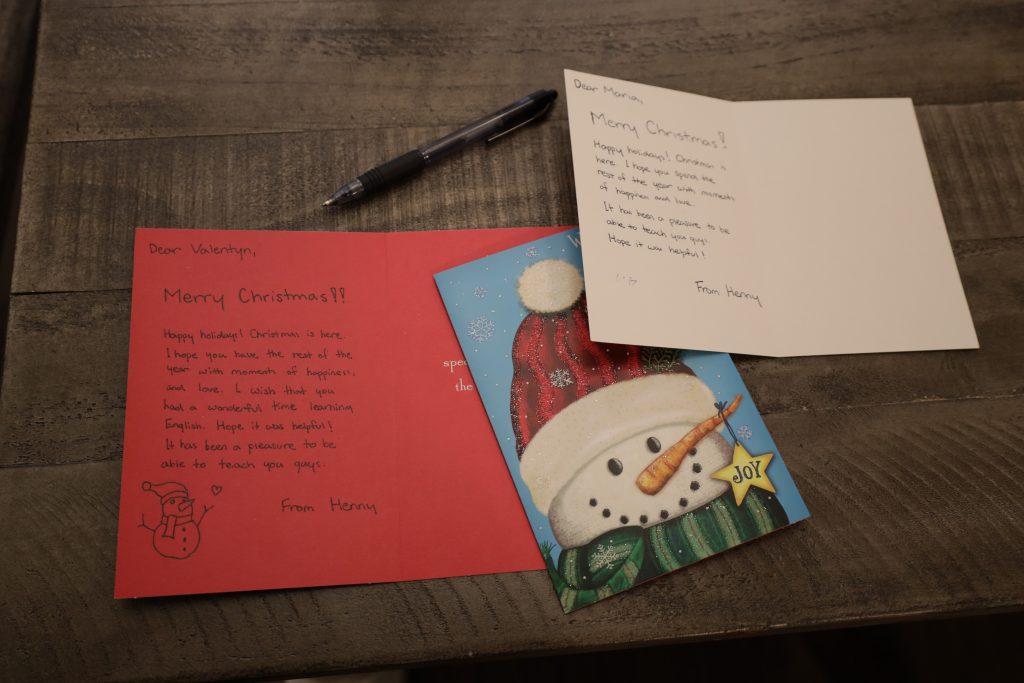 Dear Valentyn,
Merry Christmas!!
Happy holidays! Christmas is here.
I hope you have the rest of the
year with moments of happiness,
and love. I wish that you
had a wonderful time learning
English. Hope it was helpful!
It has been a pleasure to be
able to teach you guys.
From Henny
the
JOY
Dear Maria,
Merry Christmas!
Happy holidays! Christmas is
here. I hope you spend the
rest of the year with moments
of happines and love.
It has been a pleasure to be
able to teach you guys.
Hope it was helpful!
From Henny